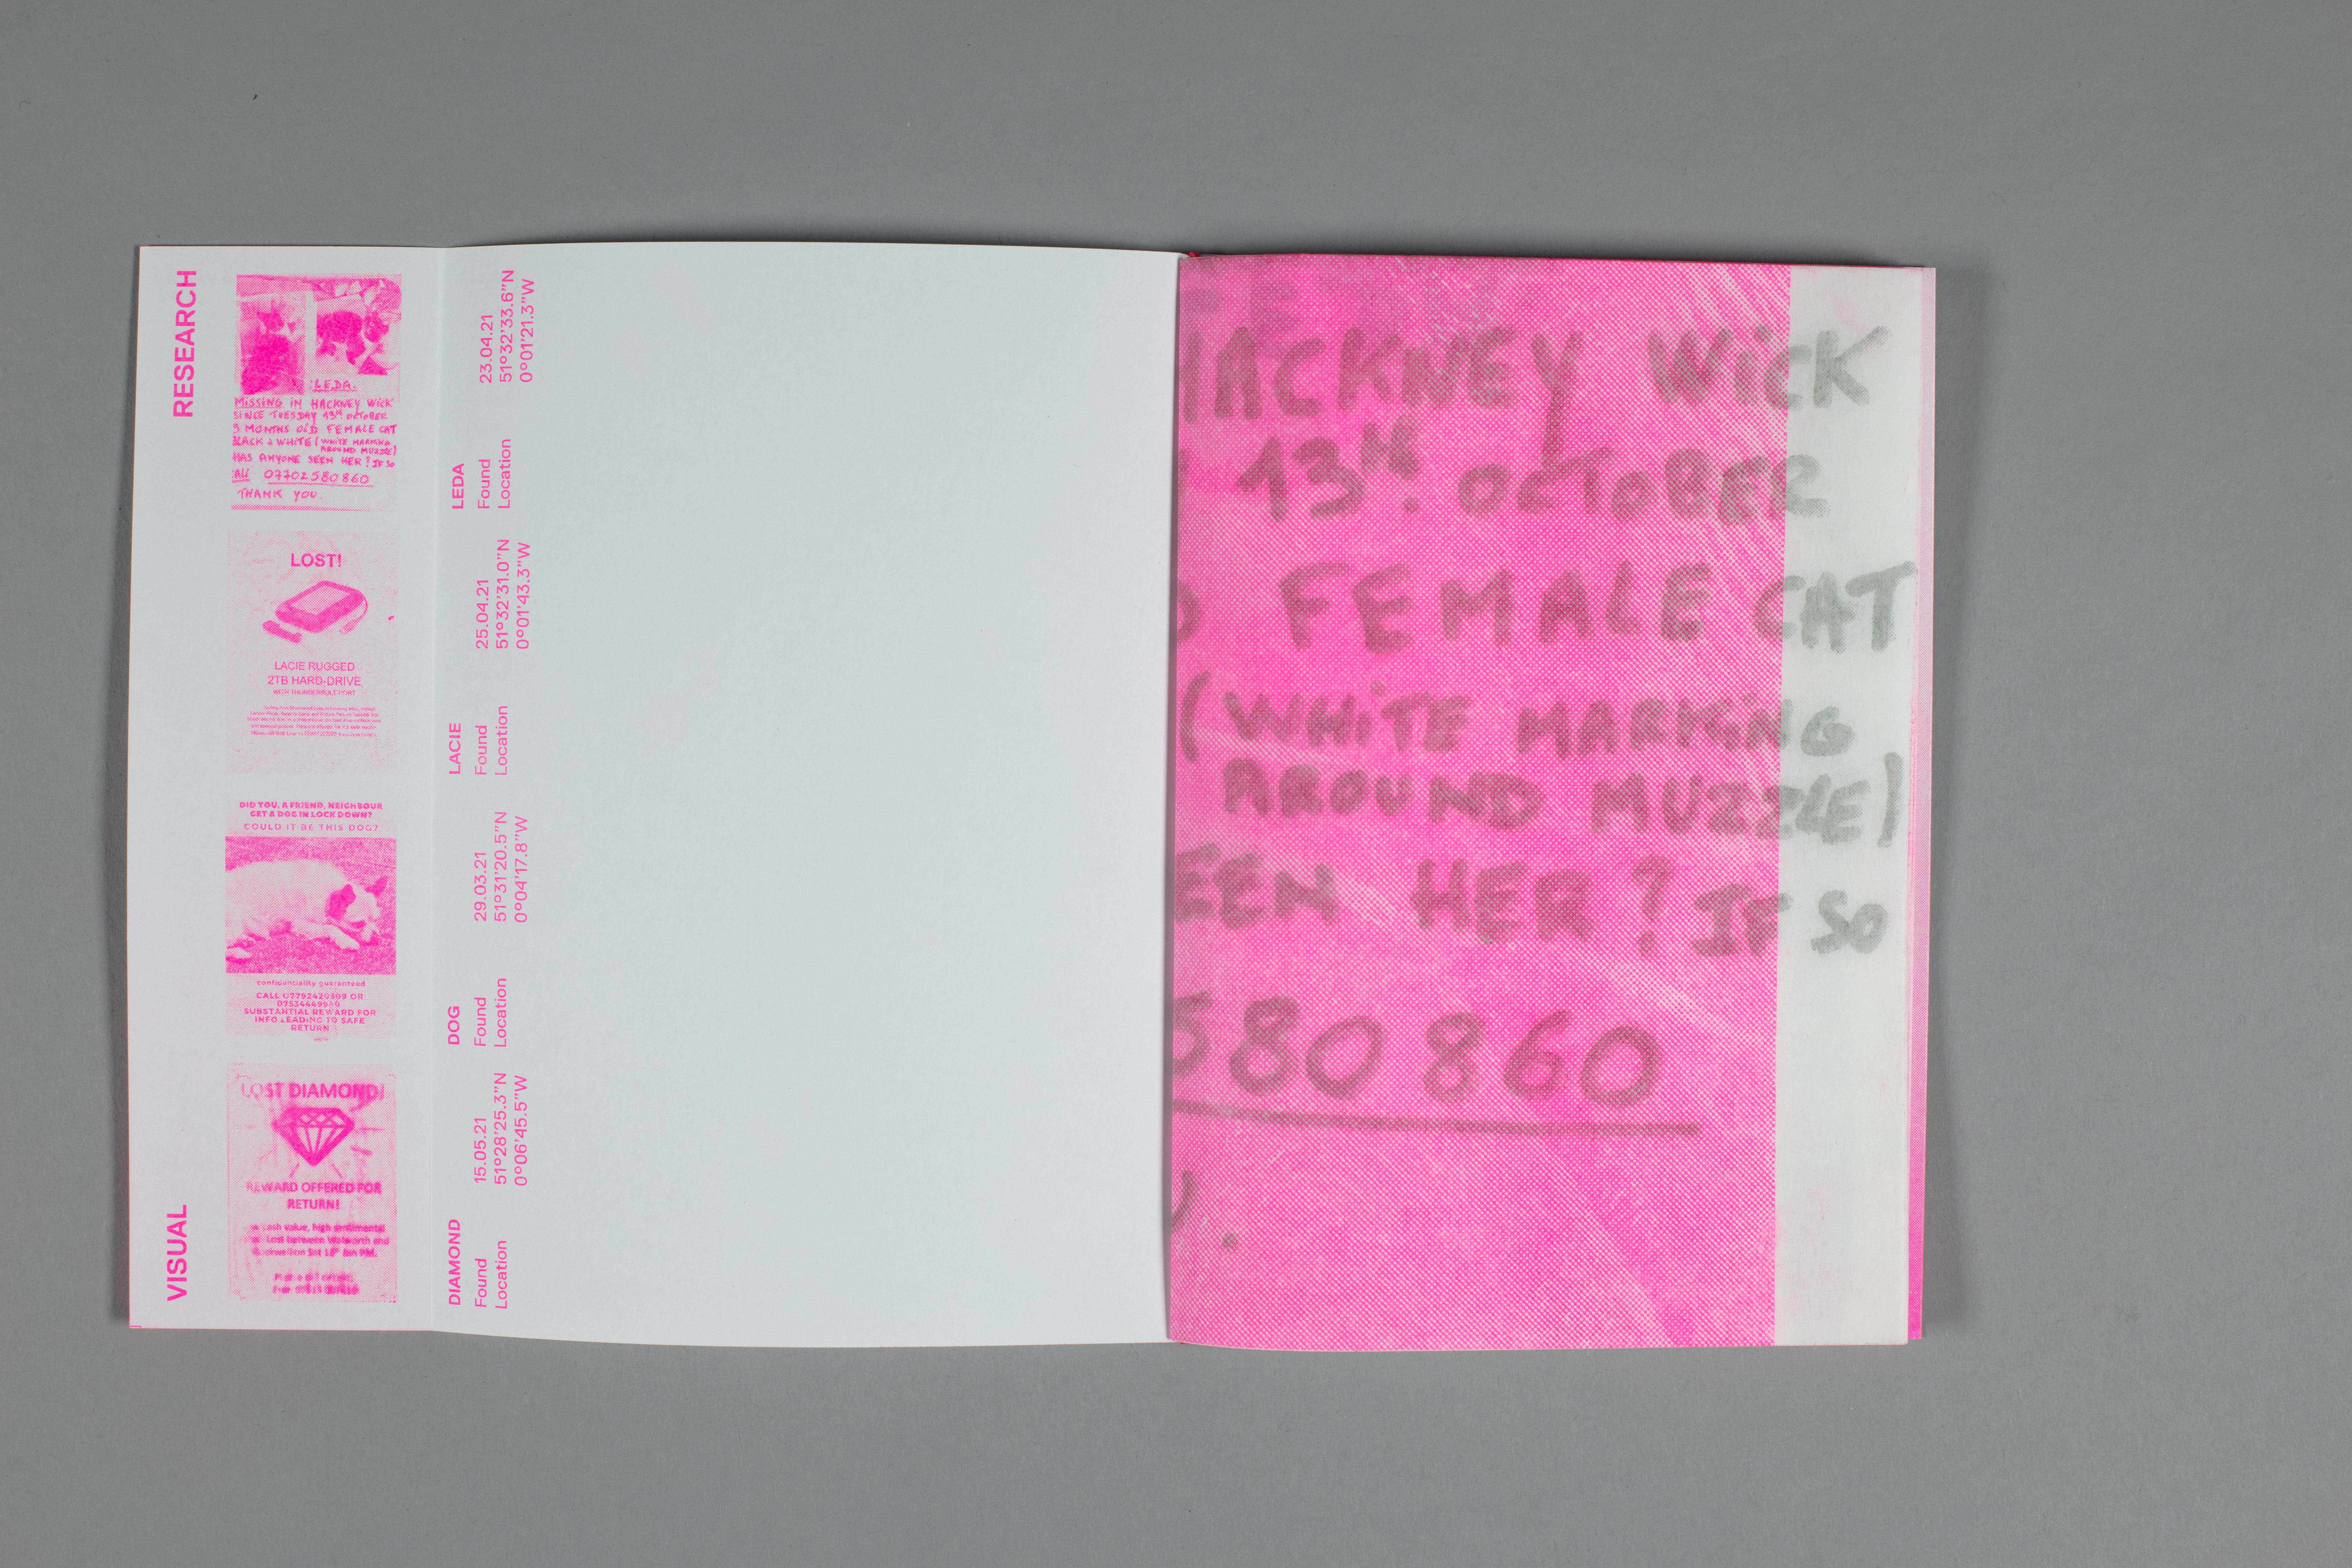 RESEARCH
VISUAL
LEDA.
MISSING IN HACKNEY WICK
SINCE TUESDAY 13th OCTOBER
9 MONTHS OLD FEMALE CAT
BLACK & WHITE (WHITE MARKING
AROUND MUZZLE)
HAS ANYONE SEEN HER? IF SO
CALL 07702580860
THANK YOU.
LOST!
LACIE RUGGED
2TB HARD-DRIVE
WITH THUNDERBOLT PORT
DID YOU, A FRIEND, NEIGHBOUR
GET A DOG IN LOCK DOWN?
COULD IT BE THIS DOG?
confidentiality guaranteed
CALL OR
SUBSTANTIAL REWARD FOR
INFO LEADING TO SAFE
RETURN
LOST DIAMOND!
REWARD OFFERED FOR
RETURN!
cash value, high sentimental
Lost between Walworth and
LEDA
Found 23.04.21
Location 51º32'33.6"N
0º01'21.3"W
LACIE
Found 25.04.21
Location 51º32'31.0"N
0º01'43.3"W
DOG
Found 29.03.21
Location 51º31'20.5"N
0º04'17.8"W
DIAMOND
Found 15.05.21
Location 51º28'25.3"N
0º06'45.5"W
HACKNEY WICK
13th. OCTOBER
D FEMALE CAT
(WHITE MARKING
AROUND MUZZLE)
EEN HER? IF SO
580 860
U.